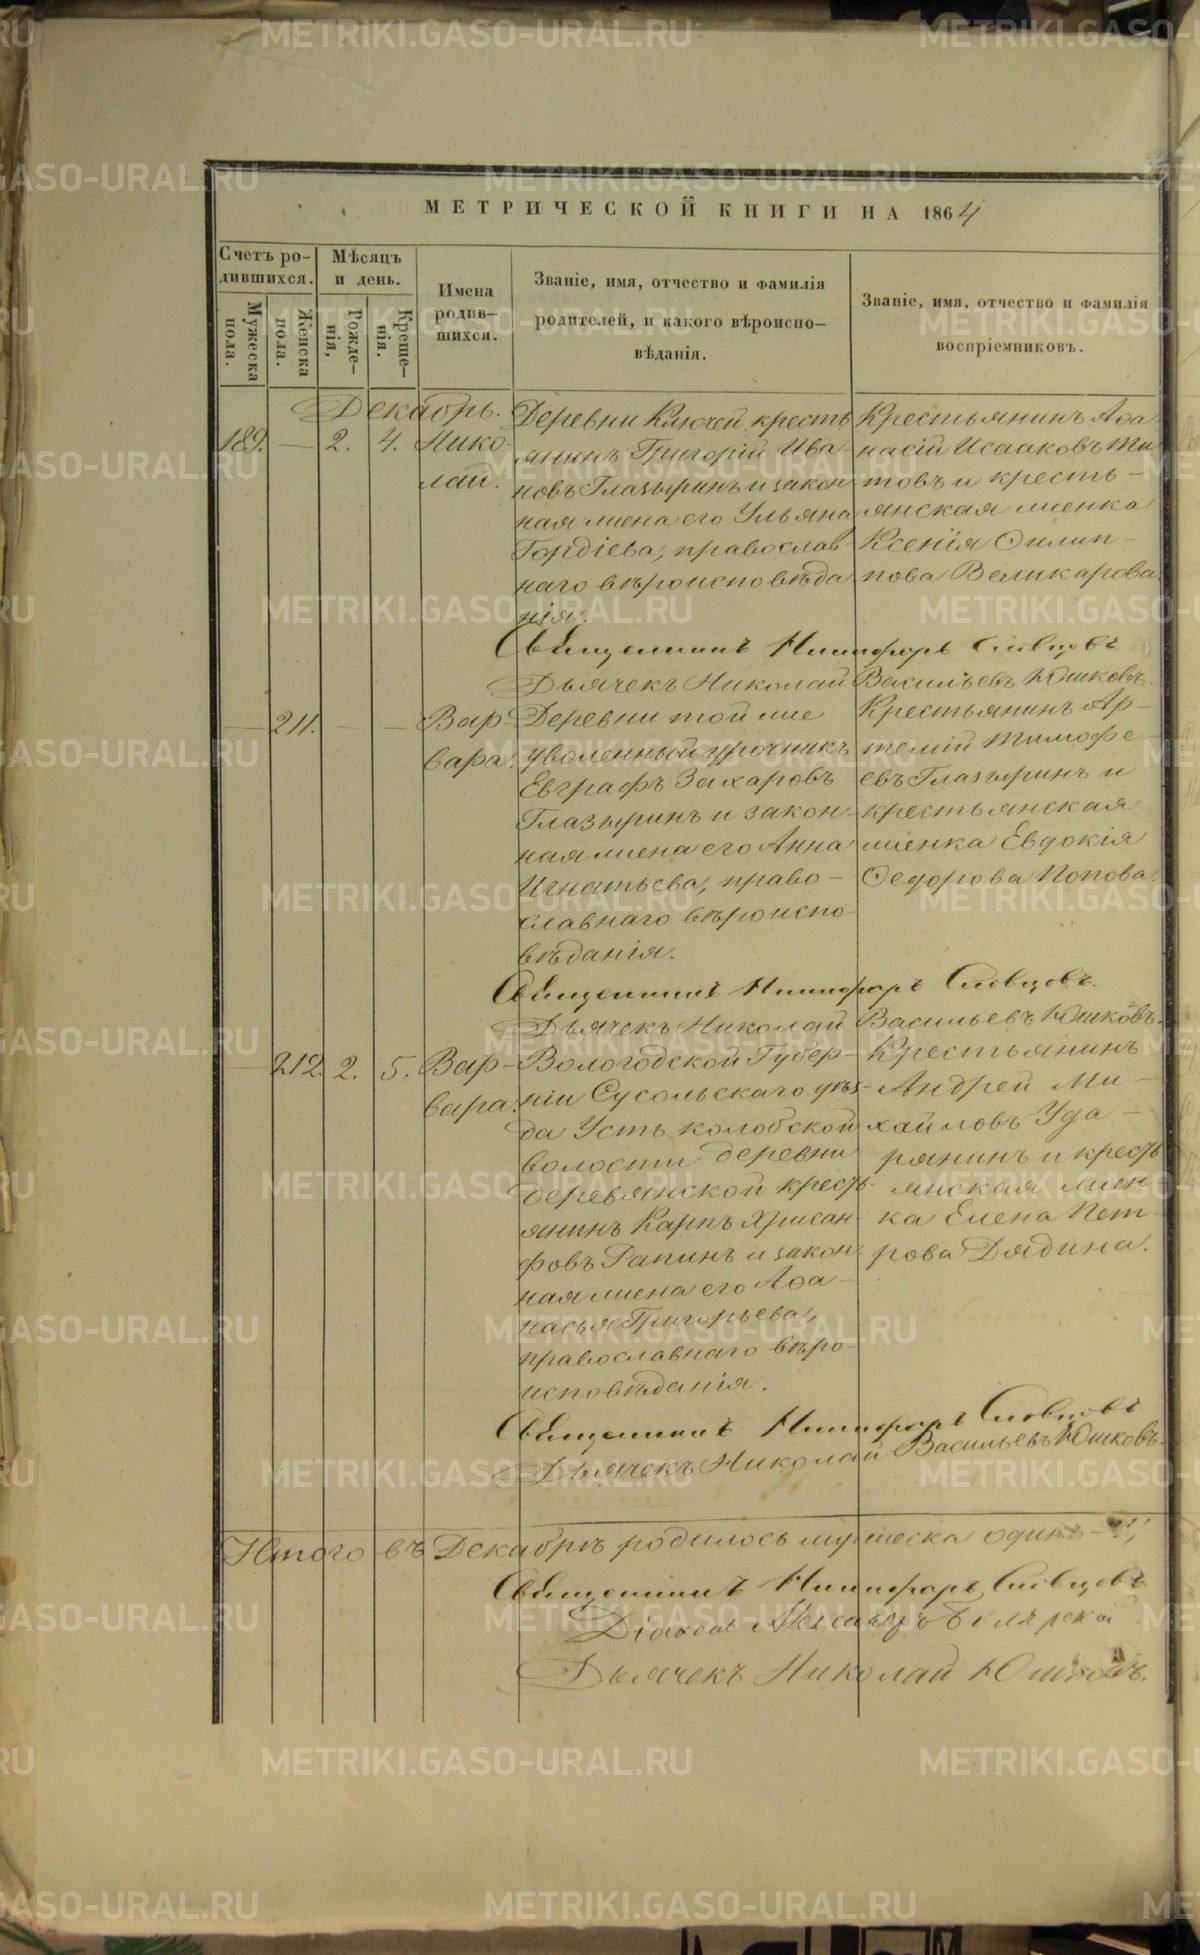 МЕТРИЧЕСКОЙ КНИГИ НА 1864
Счетъ ро-
дившихся.
Мѣсяцъ
и день.
Имена
родив-
шихся.
Званіе, имя, отчество и фамилія
родителей, и какого вѣроиспо-
вѣданія.
Званіе, имя, отчество и фамилія
воспріемниковъ.
Мужеска
пола.
Женска
пола.
Рожде-
нія,
Креще-
нія.
Декабрь.
189. — 2. 4. Нико-
лай.
Деревни Ключей кресть
янинъ Григорій Ива-
новъ Глазыринъ и закон
ная жена его Ульяна
Гордіева, православ-
наго вѣроисповѣда
нія.
Крестьянинъ Аѳа
насій Исааковъ Ти
товъ и кресть-
янская женка
Ксенія Филип-
пова Великарова.
Священникъ Никифоръ Словцовъ
Дьячекъ Николай Васильевъ Юшковъ.
— 211. — — Вар-
вара.
Деревни той же
уволенный урочникъ
Евграфъ Захаровъ
Глазыринъ и закон-
ная жена его Анна
Игнатьева, право-
славнаго вѣроиспо-
вѣданія.
Крестьянинъ Ар-
темій Тимофе-
евъ Глазыринъ и
крестьянская
женка Евдокія
Ѳедорова Попова.
Священникъ Никифоръ Словцовъ.
Дьячекъ Николай Васильевъ Юшковъ.
— 212. 2. 5. Вар-
вара.
Вологодской Губер-
ніи Сусольскаго уѣз-
да Усть колобской
волости деревни
деревянской кресть-
янинъ Карпъ Хрисан-
фовъ Рапинъ и закон
ная жена его Аѳа-
насья Григорьева,
православнаго вѣро-
исповѣданія.
Крестьянинъ
Андрей Ми-
хайловъ Уда-
рянинъ и кресть
янская жен-
ка Елена Пет-
рова Дядина.
Священникъ Никифоръ Словцовъ
Дьячекъ Николай Васильевъ Юшковъ.
Итого въ Декабрѣ родилось мужеска одинъ — 1,
Священникъ Никифоръ Словцовъ
Діаконъ
Дьячекъ Николай Юшковъ.
METRIKI.GASO-URAL.RU